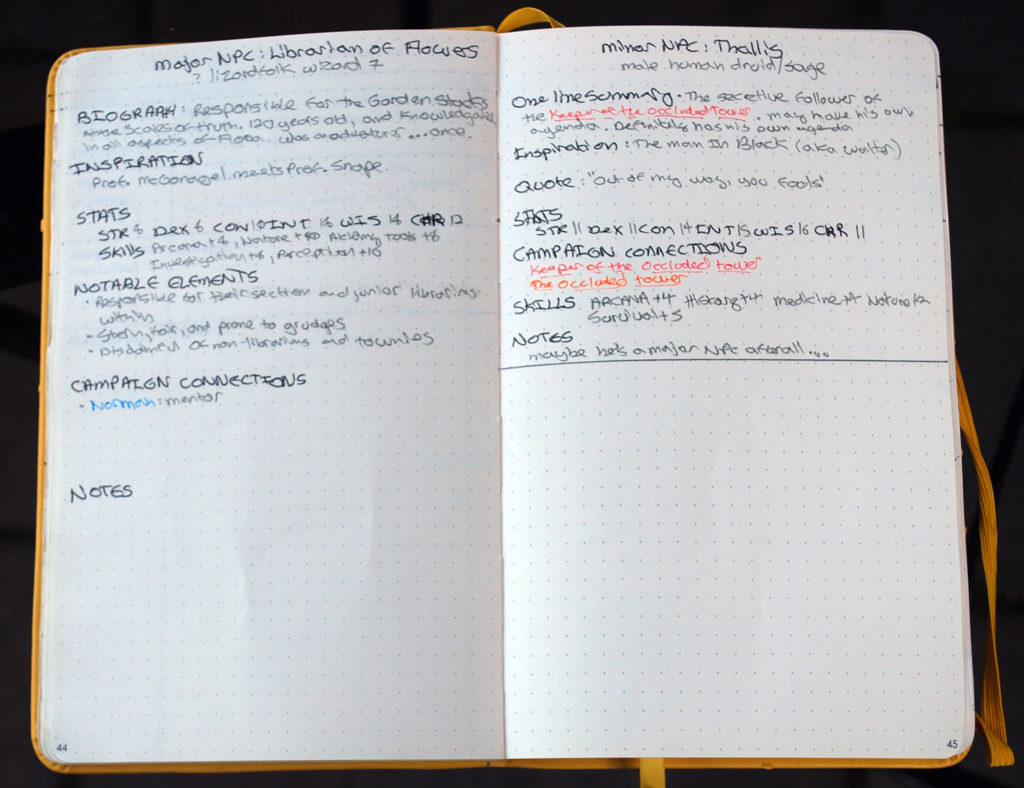 major NPC: Librarian of Flowers
? lizardfolk wizard 7
BIOGRAPHY: Responsible for the Garden Stacks
Scales of truth. 120 years old, and knowledgable
in all aspects of Flora. was an adventurer ... once.
INSPIRATION
Prof. McGonagel meets Prof. Snape
STATS
STR 8 Dex 8 CON 10 INT 18 WIS 14 CHR 12
Skills Arcana +8, Nature +10 Alchemy tools +8
Investigation +8, Perception +10
NOTABLE ELEMENTS
• Responsible for their section and junior librarians
within
• Stern, fair, and prone to grudges
• Disdainful of non-librarians and townies
CAMPAIGN CONNECTIONS
• Norman: mentor
NOTES
44
minor NPC: Thallis
male human druid/sage
One line summary. The secretive follower of
the Keeper of the Occluded Tower. may have his own
agenda. Definitely has his own agenda
Inspiration: The man In Black (aka walter)
Quote: "out of my way, you fools"
STATS
STR 11 Dex 11 Con 14 INT 15 WIS 16 CHR 11
CAMPAIGN CONNECTIONS
Keeper of the Occluded tower
The Occluded tower
SKILLS ARCANA +4 History +4 medicine +4 Nature
Survival +5
NOTES
maybe he's a major NPC afterall...
45